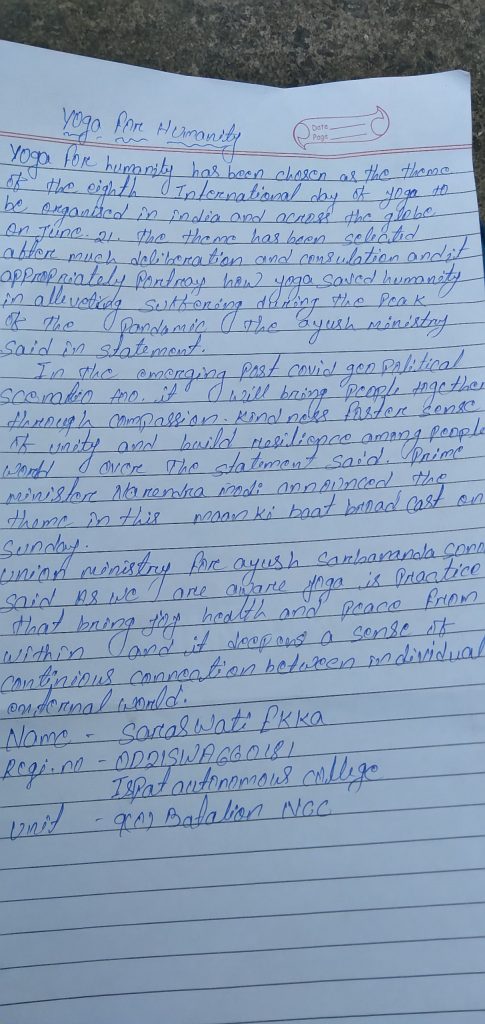 Yoga for Humanity
Date
Page
Yoga for humanity has been chosen as the theme
of the eighth International day of yoga to
be organized in india and across the globe
on June. 21. the theme has been selected
after much deliberation and consulation and it
appropriately portray how yoga saved humanity
in alleveting suffering during the peak
of the Pandamic the ayush ministry
said in statement.
In the emerging Post covid geo political
scenario too. it will bring people together
through compassion. Kindness foster sense
of unity and build resilience among people
world over The statement said. Prime
minister Narendra modi announced the
theme in this maan ki baat broad cast on
Sunday.
union ministry for ayush Sarbananda Sono
said As we are aware yoga is Practice
that bring joy health and peace from
within and it deepens a sense of
continious connection between individual
external world.
Name - Saraswati Ekka
Regi. no - OD21SWA660181
Ispat autonomous college
unit - Batalion NCC